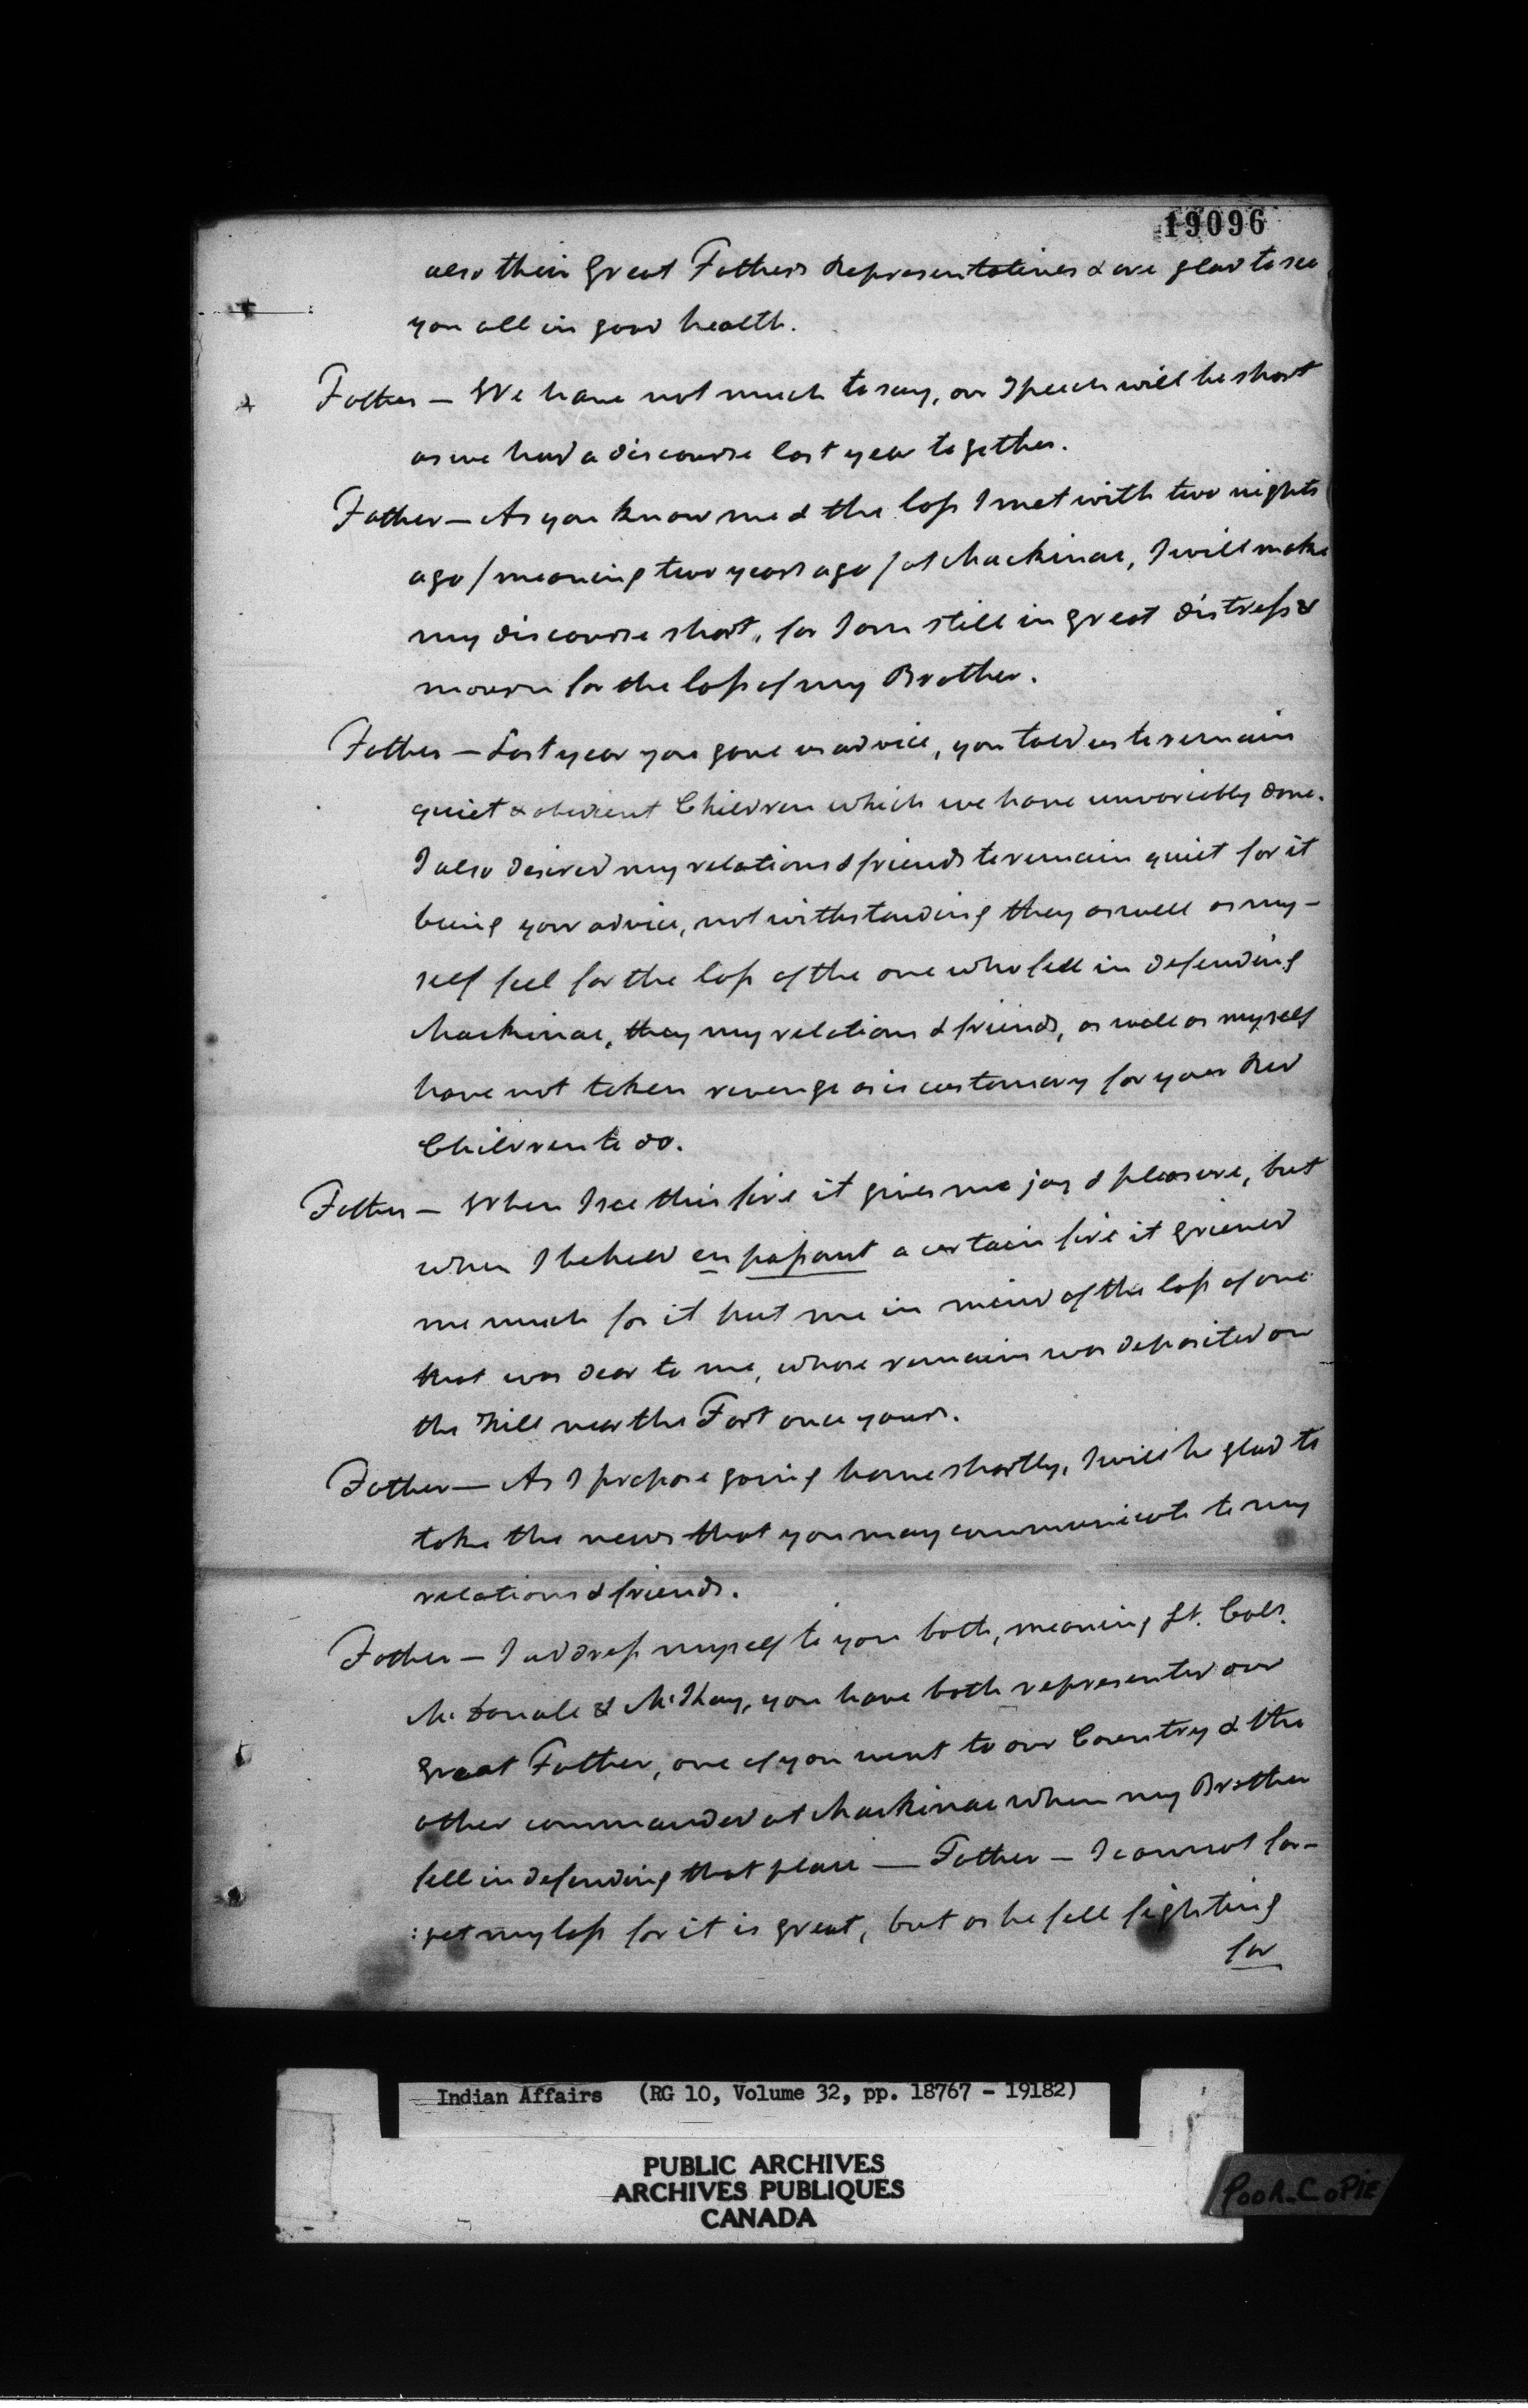 19096
also their Great Fathers Representatives & are glad to see
you all in good health.
Father — We have not much to say, our Speech will be short
as we had a discourse last year together.
Father — As you know me & the loss I met with two nights
ago / meaning two years ago / at Mackinac, I will make
my discourse short, for I am still in great distress &
mourn for the loss of my Brother.
Father — Last year you gave us advice, you told us to remain
quiet & obedient Children which we have invariably done.
I also desired my relations & friends to remain quiet for it
being your advice, notwithstanding they as well as my-
self feel for the loss of the one who fell in defending
Mackinac, they my relations & friends, as well as myself
have not taken revenge as is customary for your Red
Children to do.
Father — When I see this fire it gives me joy & pleasure, but
when I beheld en passant a certain fire it grieved
me much for it put me in mind of the loss of one
that was dear to me, whose remains was deposited on
the Hill near the Fort once yours.
Father — As I propose going home shortly, I will be glad to
take the news that you may communicate to my
relations & friends.
Father — I address myself to you both, meaning Lt. Cols.
McDonall & McKay, you have both represented our
Great Father, one of you went to our Country & the
other commanded at Mackinac when my Brother
fell in defending that place — Father — I cannot for-
:get my loss for it is great, but as he fell fighting
for
Indian Affairs (RG 10, Volume 32, pp. 18767 - 19182)
PUBLIC ARCHIVES
ARCHIVES PUBLIQUES
CANADA
POOR COPIE